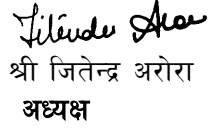 Jitender Arora
श्री जितेन्द्र अरोरा
अध्यक्ष